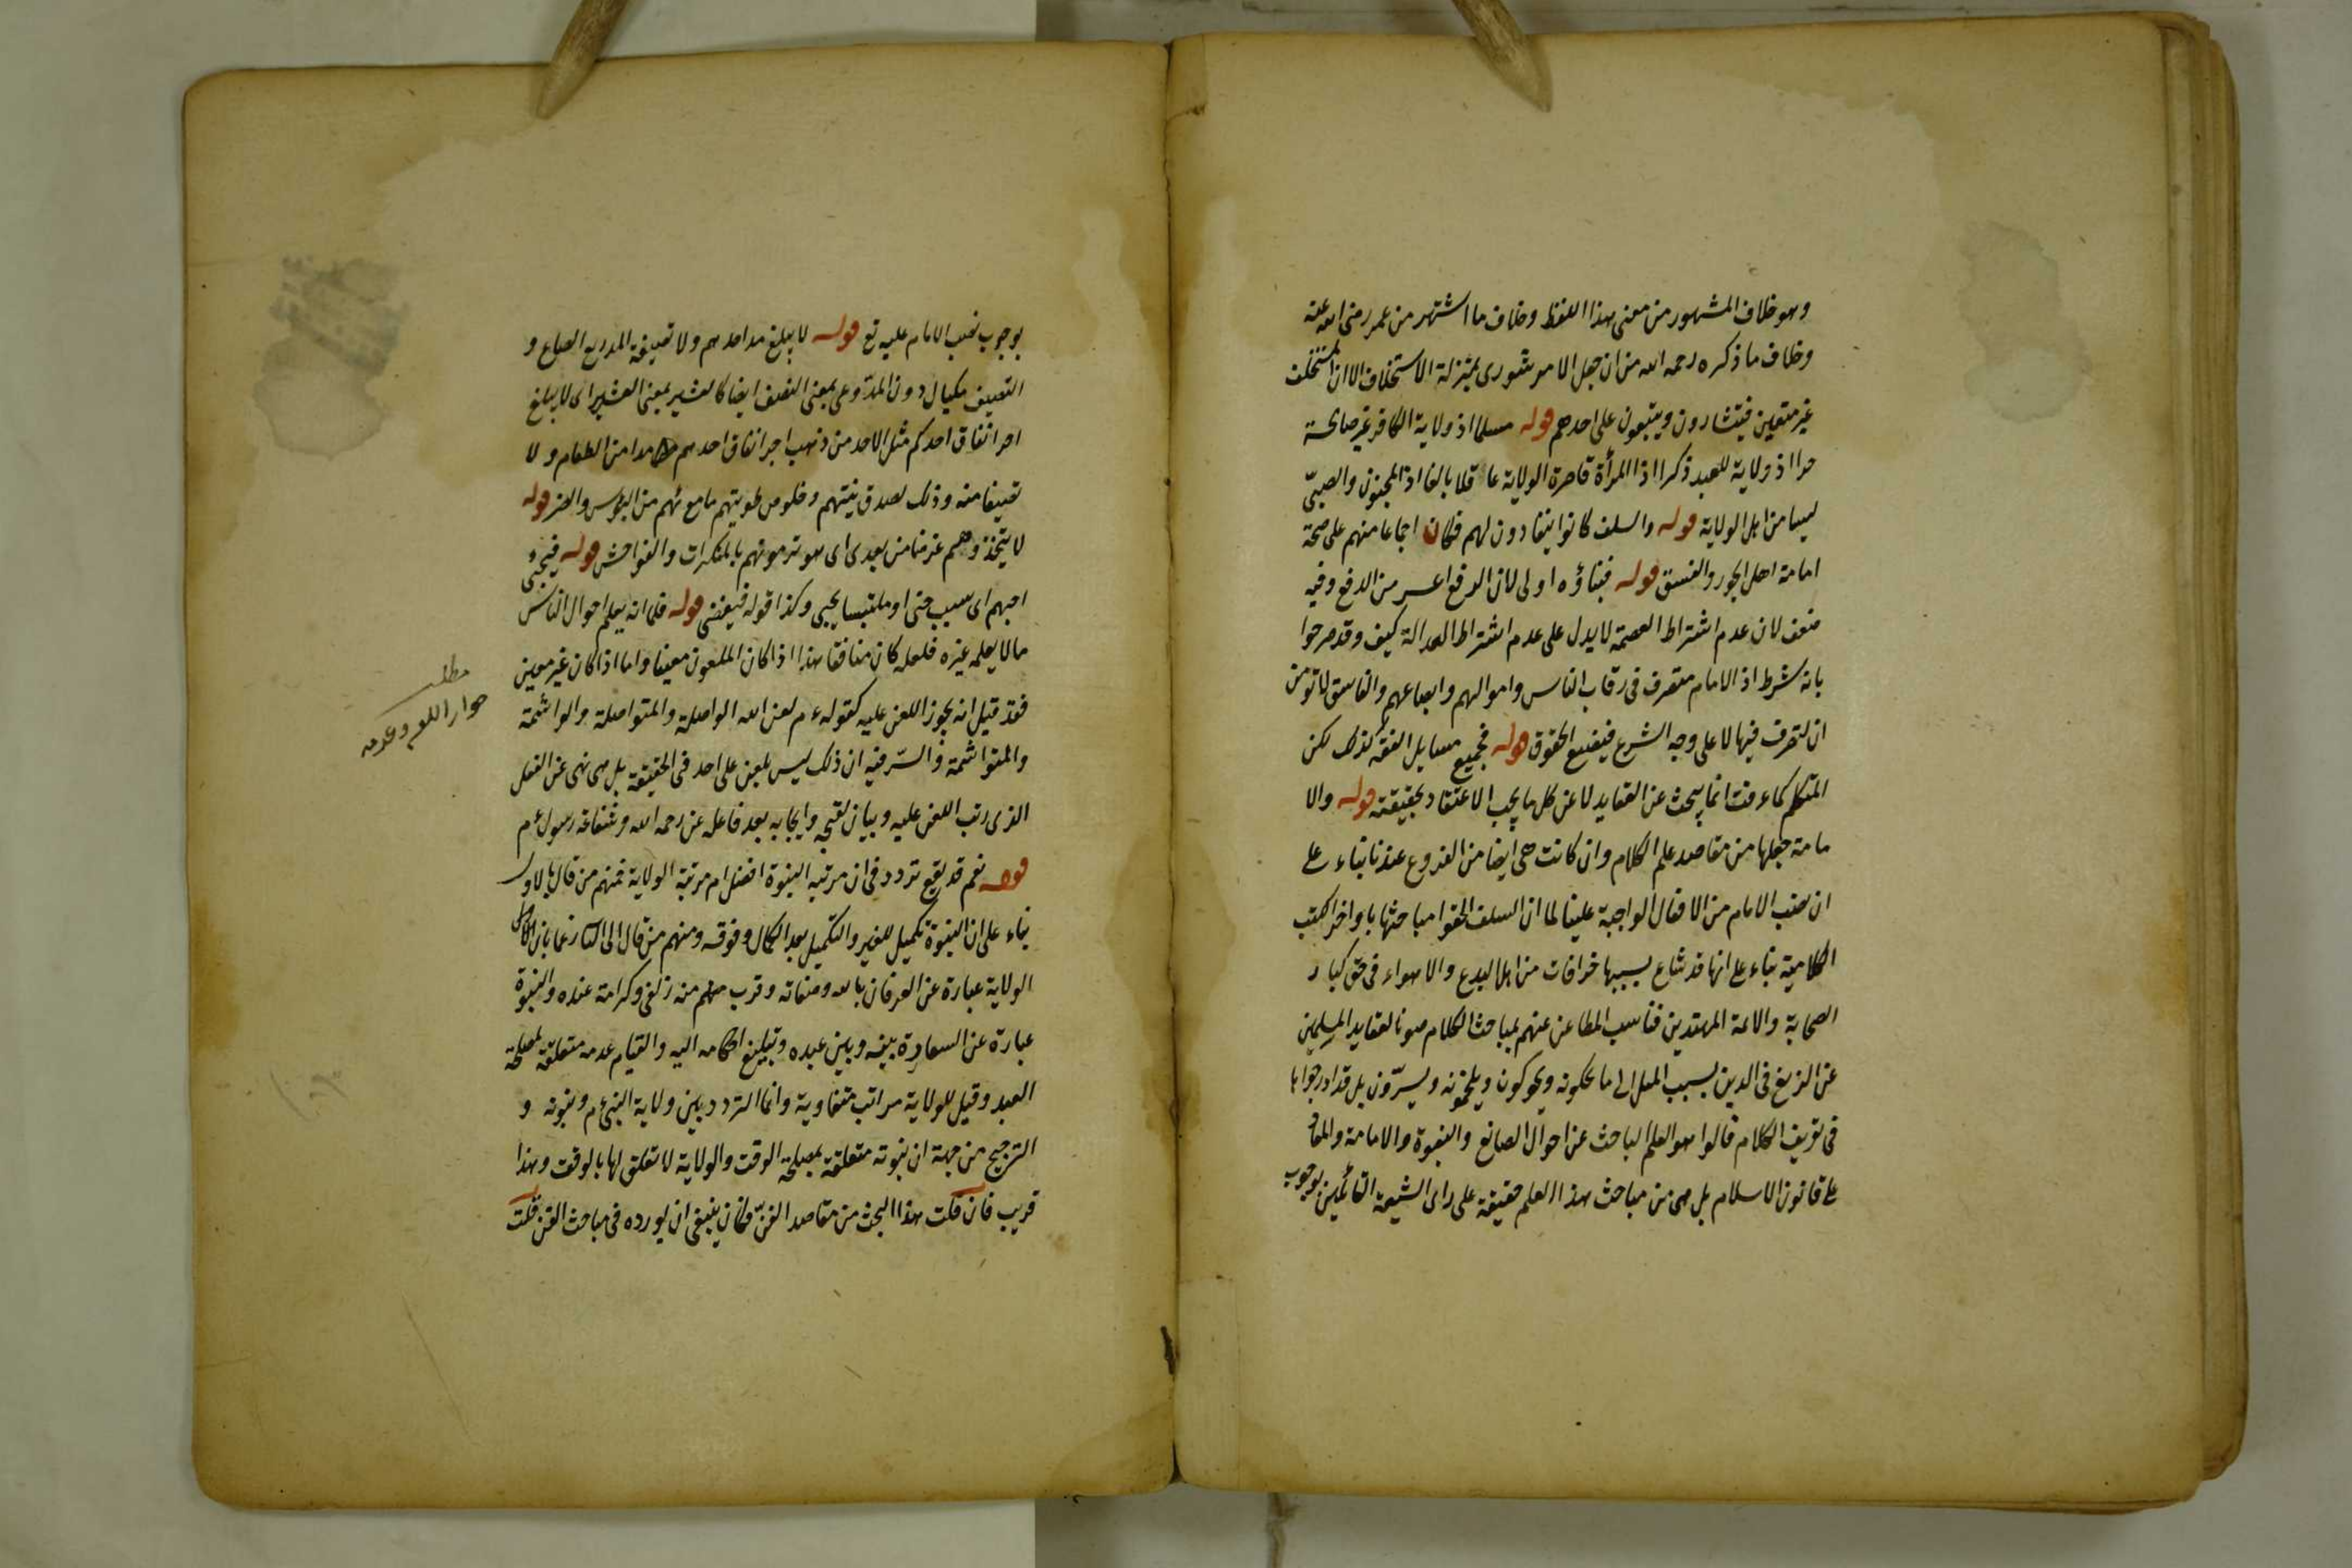 وهو خلاف المشهور من معنى هذا اللفظ وخلاف ما اشتهر من عمر رضى الله عنه
وخلاف ما ذكره رحمه الله من ان جعل الامر شورى بمنزلة الاستخلاف الا ان المستخلف
غير متعين فيتشاورون ويتفقون على احدهم قوله مسلما اذ ولاية الكافر غير صالحة
حرا اذ ولاية للعبد ذكرا اذ المرأة قاصرة الولاية عاقلا بالغا اذ المجنون والصبىّ
ليسا من اهل الولاية قوله والسلف كانوا ينقادون لهم فكان اجماعا منهم على صحة
امامة اهل الجور والفسق قوله فبناؤه اولى لان الرفع اعسر من الدفع وفيه
ضعف لان عدم اشتراط العصمة لا يدل على عدم اشتراط العدالة كيف وقد صرحوا
بانه شرط اذ الامام متصرف فى رقاب الناس واموالهم وابضاعهم والفاسق لا تؤمن
ان تصرف فيها لا على وجه الشرع فيضيع الحقوق قوله فجميع مسايل الفقه كذلك لكن
المتكلم كما عرفت انما يبحث عن العقايد لا عن كل ما يجب الاعتقاد بحقيقته قوله والا
مامة جعلها من مقاصد علم الكلام وان كانت هى ايضا من الفروع عندنا بناء على
ان نصب الامام من الافعال الواجبة علينا لما ان السلف الحقوا مباحثها باواخر الكتب
الكلامية بناء على انها قد شاع بسببها خرافات من اهل البدع والاهواء فى حق كبار
الصحابة والائمة المهتدين فناسب المطاعن عنهم بمباحث الكلام صونا لعقايد المسلمين
عن الزيغ فى الدين بسبب الميل الى ما يحكونه ويحوكون ويلحمونه ويسرّون بل قد ادرجوا ها
فى تعريف الكلام قالوا هو العلم الباحث عن احوال الصانع والنبوة والامامة والمعاد
على قانون الاسلام بل هى من مباحث هذا العلم حقيقة على راى الشيعة القائلين بوجوب
بوجوب نصب الامام عليه تع قوله لا يبلغ مد احدهم ولا نصيفه المد ربع الصاع و
النصيف مكيال دون المدّ وعى بمعنى النصف ايضا كالعشير بمعنى العشر اى لا يبلغ
اجر انفاق احدكم مثل الاحد من ذهب اجر انفاق احدهم مدا من الطعام ولا
نصيفا منه وذلك لصدق نيتهم وخلوص طويتهم مامع ئهم من البؤس والضر قوله
لا تتخذوهم غرضا من بعدى اى هو ترمونهم بالمنكرات والفواحش قوله فبحبّى
احبهم اى بسبب حبى او ملتبسا بحبى وكذا قوله فببغضى قوله فلما انه يعلم احوال الناس
ما لا يعلمه غيره فلعله كان منافقا هذا اذا كان الملعون معينا واما اذا كان غير معين
فقد قيل انه يجوز اللعن عليه كقوله ءم لعن الله الواصلة والمتواصلة والواشمة
والمتواشمة والسّر فيه ان ذلك ليس بلعن على احد فى الحقيقة بل هى نهى عن الفعل
الذى رتب اللعن عليه وبيان لقبحه وايجابه بعد فاعله عن رحمه الله وشفاعة رسول ءم
قوله نعم قد يقع تردد فى ان مرتبه النبوة افضل ام مرتبة الولاية فمنهم من قال بالاول
بناء على ان النبوة تكميل للغير والتكميل بعد الكمال وفوقه ومنهم من قال الى الثا زعما بان
الولاية عبارة عن العرفان بالله وصفاته وقرب منهم منه زلفى وكرامة عنده والنبوة
عبارة عن السفارة بينه وبين عبده وتبليغ احكامه اليه والقيام عدمه متعلقة لمصلحة
العبد وقيل للولاية مراتب متفاوية وانما التردد بين ولاية النبى ءم ونبوته و
الترجيح من جهة ان نبوته متعلقة بمصلحة الوقت والولاية لا تعلق لها بالوقت وهذا
قريب فان قلت هذا البحث من مقاصد الفنّ فكان ينبغى ان يورده فى مباحث الفن قلت
مطلب
جواز اللعن وعدمه